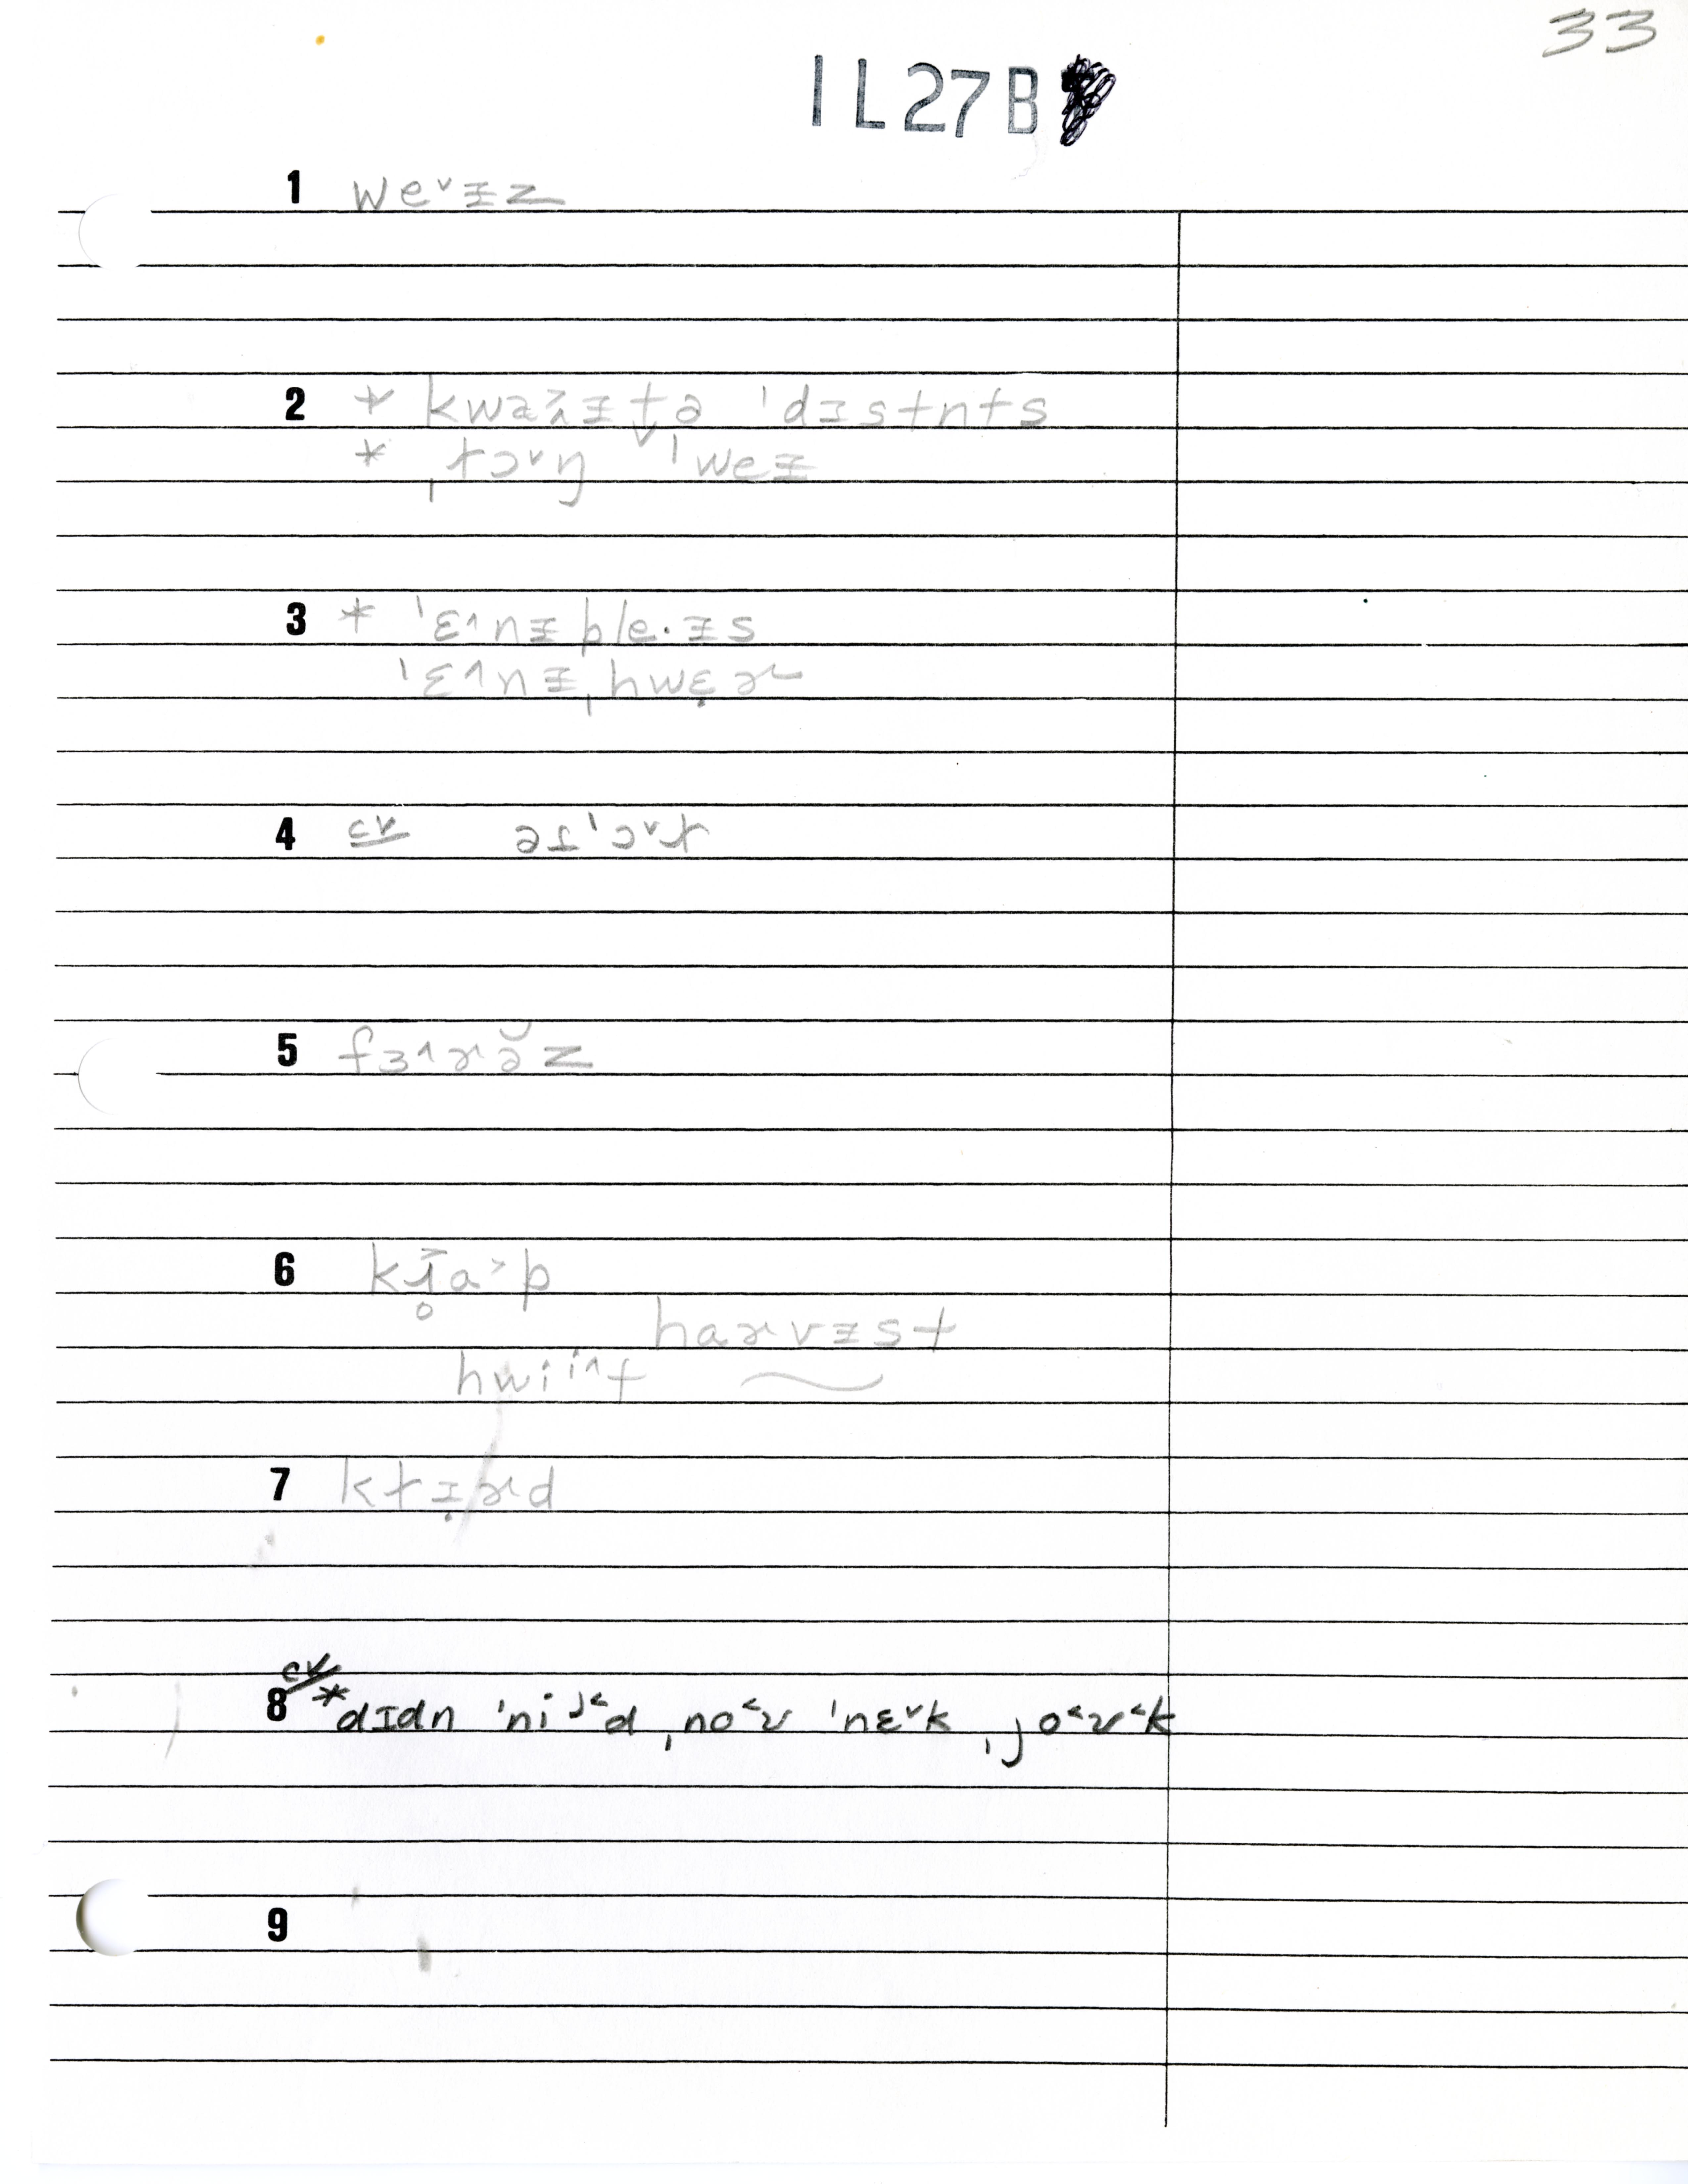 33
IL27B
1 we˅ɪz
2 * kwaɪtə ˈdɪstnts
* ˌɫɔ˅ŋ ˈweɪ
3 * ˈɛ˄nɪ ple·ɪs
ˈɛ˄nɪˌhwɛ̣ɚ
4 cv əɫˈɔ˅ɫ
5 fɜ˄ɚə̆z
6 kɹ̥a˃p
harvɪst
hwii˄t
7 kɫɪ̣ɚd
8 cv * dɪdn ˈniɪ˂d ˌno˂ʊ ˈnɛ˅k ˌjo˂ʊ˂k
9